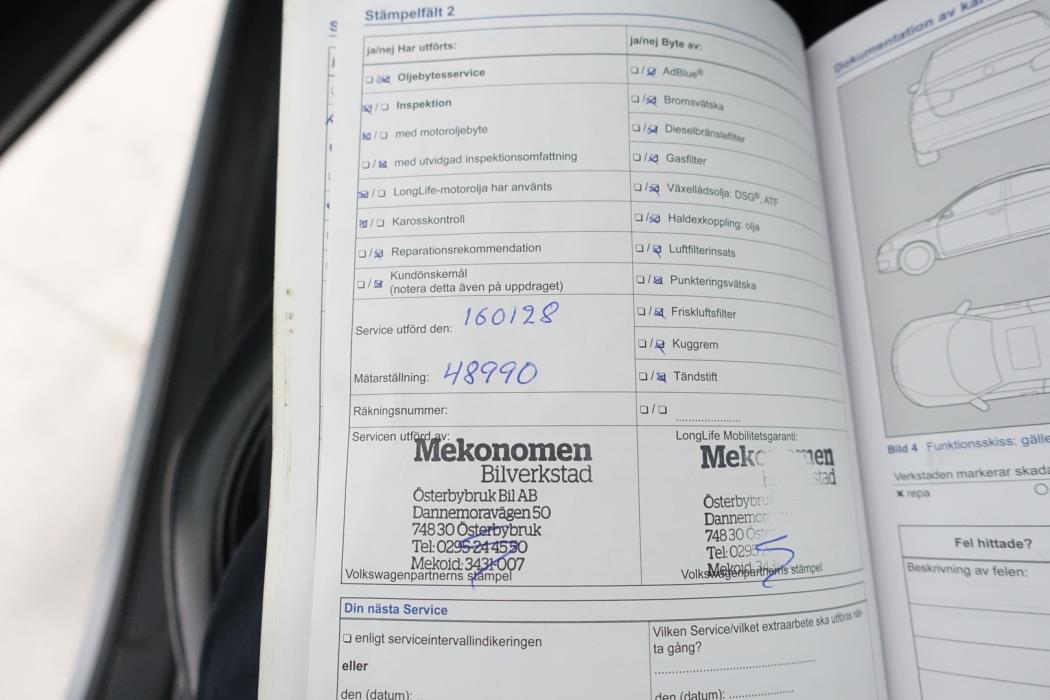 Stämpelfält 2
ja/nej Har utförts:
Oljebytesservice
Inspektion
med motoroljebyte
med utvidgad inspektionsomfattning
LongLife-motorolja har använts
Karosskontroll
Reparationsrekommendation
Kundönskemål
(notera detta även på uppdraget)
Service utförd den: 160128
Mätarställning: 48990
Räkningsnummer:
Servicen utförd av:
Mekonomen
Bilverkstad
Österbybruk Bil AB
Dannemoravägen 50
748 30 Österbybruk
Tel: 0295-244550
Mekoid: 3431-007
Volkswagenpartnerns stämpel
ja/nej Byte av:
AdBlue®
Bromsvätska
Dieselbränslefilter
Gasfilter
Växellådsolja: DSG®, ATF
Haldexkoppling: olja
Luftfilterinsats
Punkteringsvätska
Friskluftsfilter
Kuggrem
Tändstift
LongLife Mobilitetsgaranti:
Österbybru
Dannemor
748 30 Öst
Tel: 0295
Volkswagenpartnerns stämpel
Din nästa Service
enligt serviceintervallindikeringen
eller
den (datum):
Vilken Service/vilket extraarbete ska utföras
ta gång?
den (datum):
Dokumentation av
Bild 4 Funktionsskiss: gälle
Verkstaden markerar skada
× repa
Fel hittade?
Beskrivning av felen: